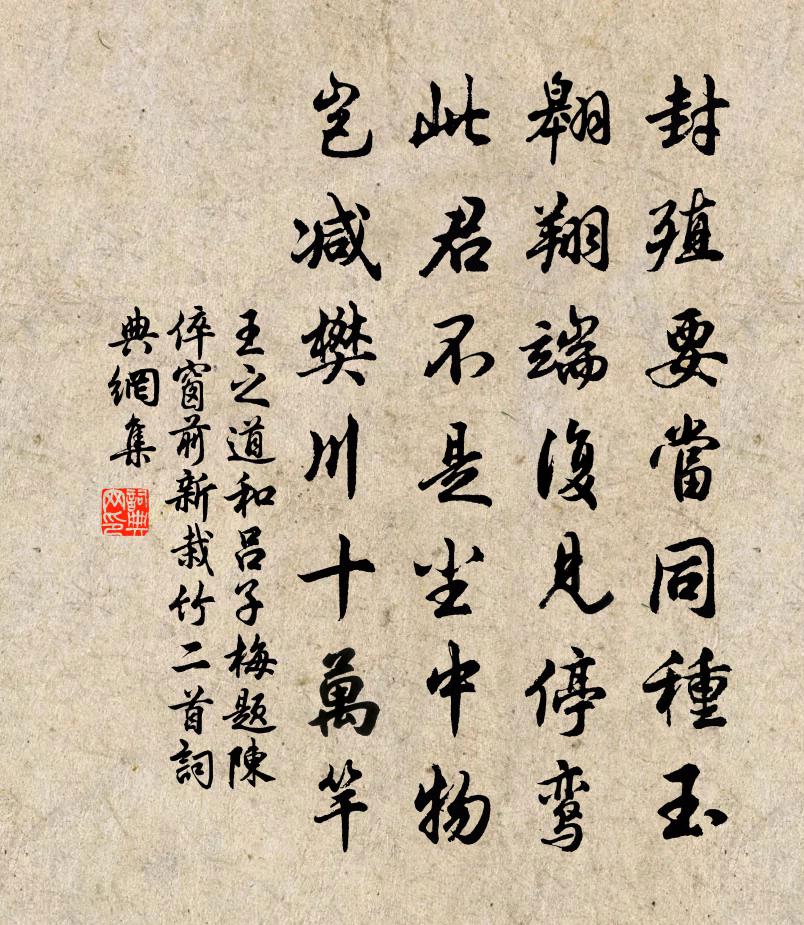 封殖要當同種玉
翱翔端復見停鸾
此君不是尘中物
岂减樊川十萬竿
王之道和呂子梅题陳
倅窗前新栽竹二首詞
典網集
詞典网印